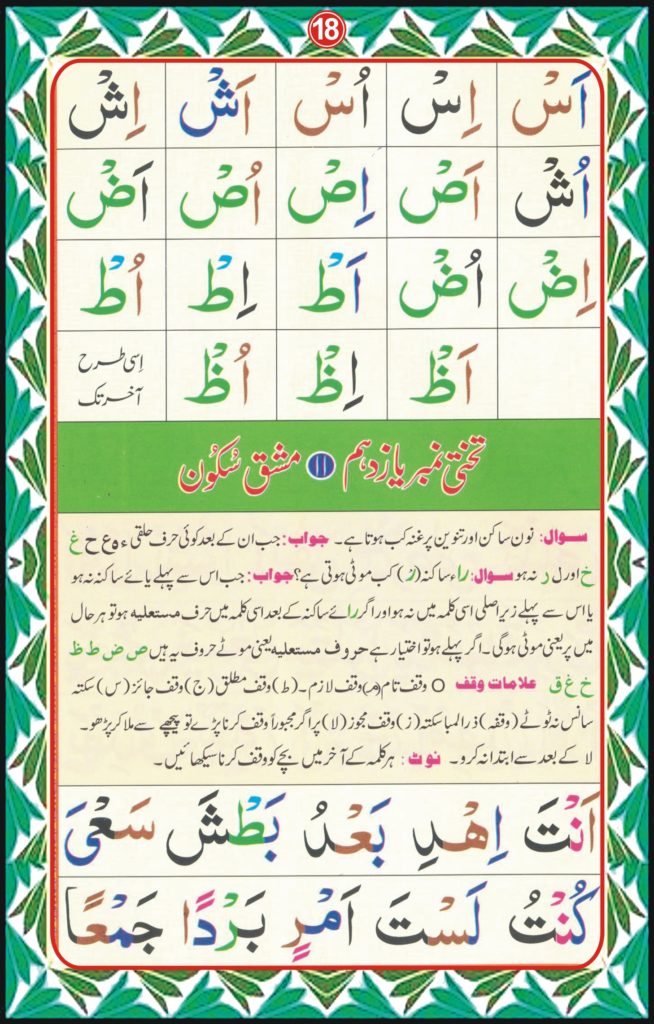 18
اَسْ اِسْ اُسْ اَشْ اِشْ
اُشْ اَصْ اِصْ اُصْ اَضْ
اِضْ اُضْ اَطْ اِطْ اُطْ
اَظْ اِظْ اُظْ اِسی طرح
آخر تک
تختی نمبر یازدہم ۱۱ مشق سُکُون
سوال: نون ساکن اور تنوین پر غنہ کب ہوتا ہے۔ جواب: جب ان کے بعد کوئی حرف حلقی ء ہ ع ح غ
خ اور ل ر نہ ہو سوال: راء ساکنہ (رْ) کب موٹی ہوتی ہے؟ جواب: جب اس سے پہلے یائے ساکنہ نہ ہو
یا اس سے پہلے زیر اصلی اسی کلمہ میں نہ ہو اور اگر رائے ساکنہ کے بعد اسی کلمہ میں حرف مستعلیہ ہو تو ہر حال
میں پر یعنی موٹی ہوگی۔ اگر پہلے ہو تو اختیار ہے حروف مستعلیه یعنی موٹے حروف یہ ہیں ص ض ط ظ
خ غ ق علامات وقف O وقف تام (م) وقف لازم۔ (ط) وقف مطلق (ج) وقف جائز (س) سکتہ
سانس نہ ٹوٹے (وقفہ) ذرا لمبا سکتہ (ز) وقف مجوز (لا) پر اگر مجبوراً وقف کرنا پڑے تو پیچھے سے ملا کر پڑھو۔
لا کے بعد سے ابتدا نہ کرو۔ نوٹ: ہر کلمہ کے آخر میں بچے کو وقف کرنا سیکھائیں۔
اَنْتَ اِهْدِ بَعْدُ بَطْشَ سَعْیَ
کُنْتُ لَسْتَ اَمْرٍ بَرْدًا جَمْعًا